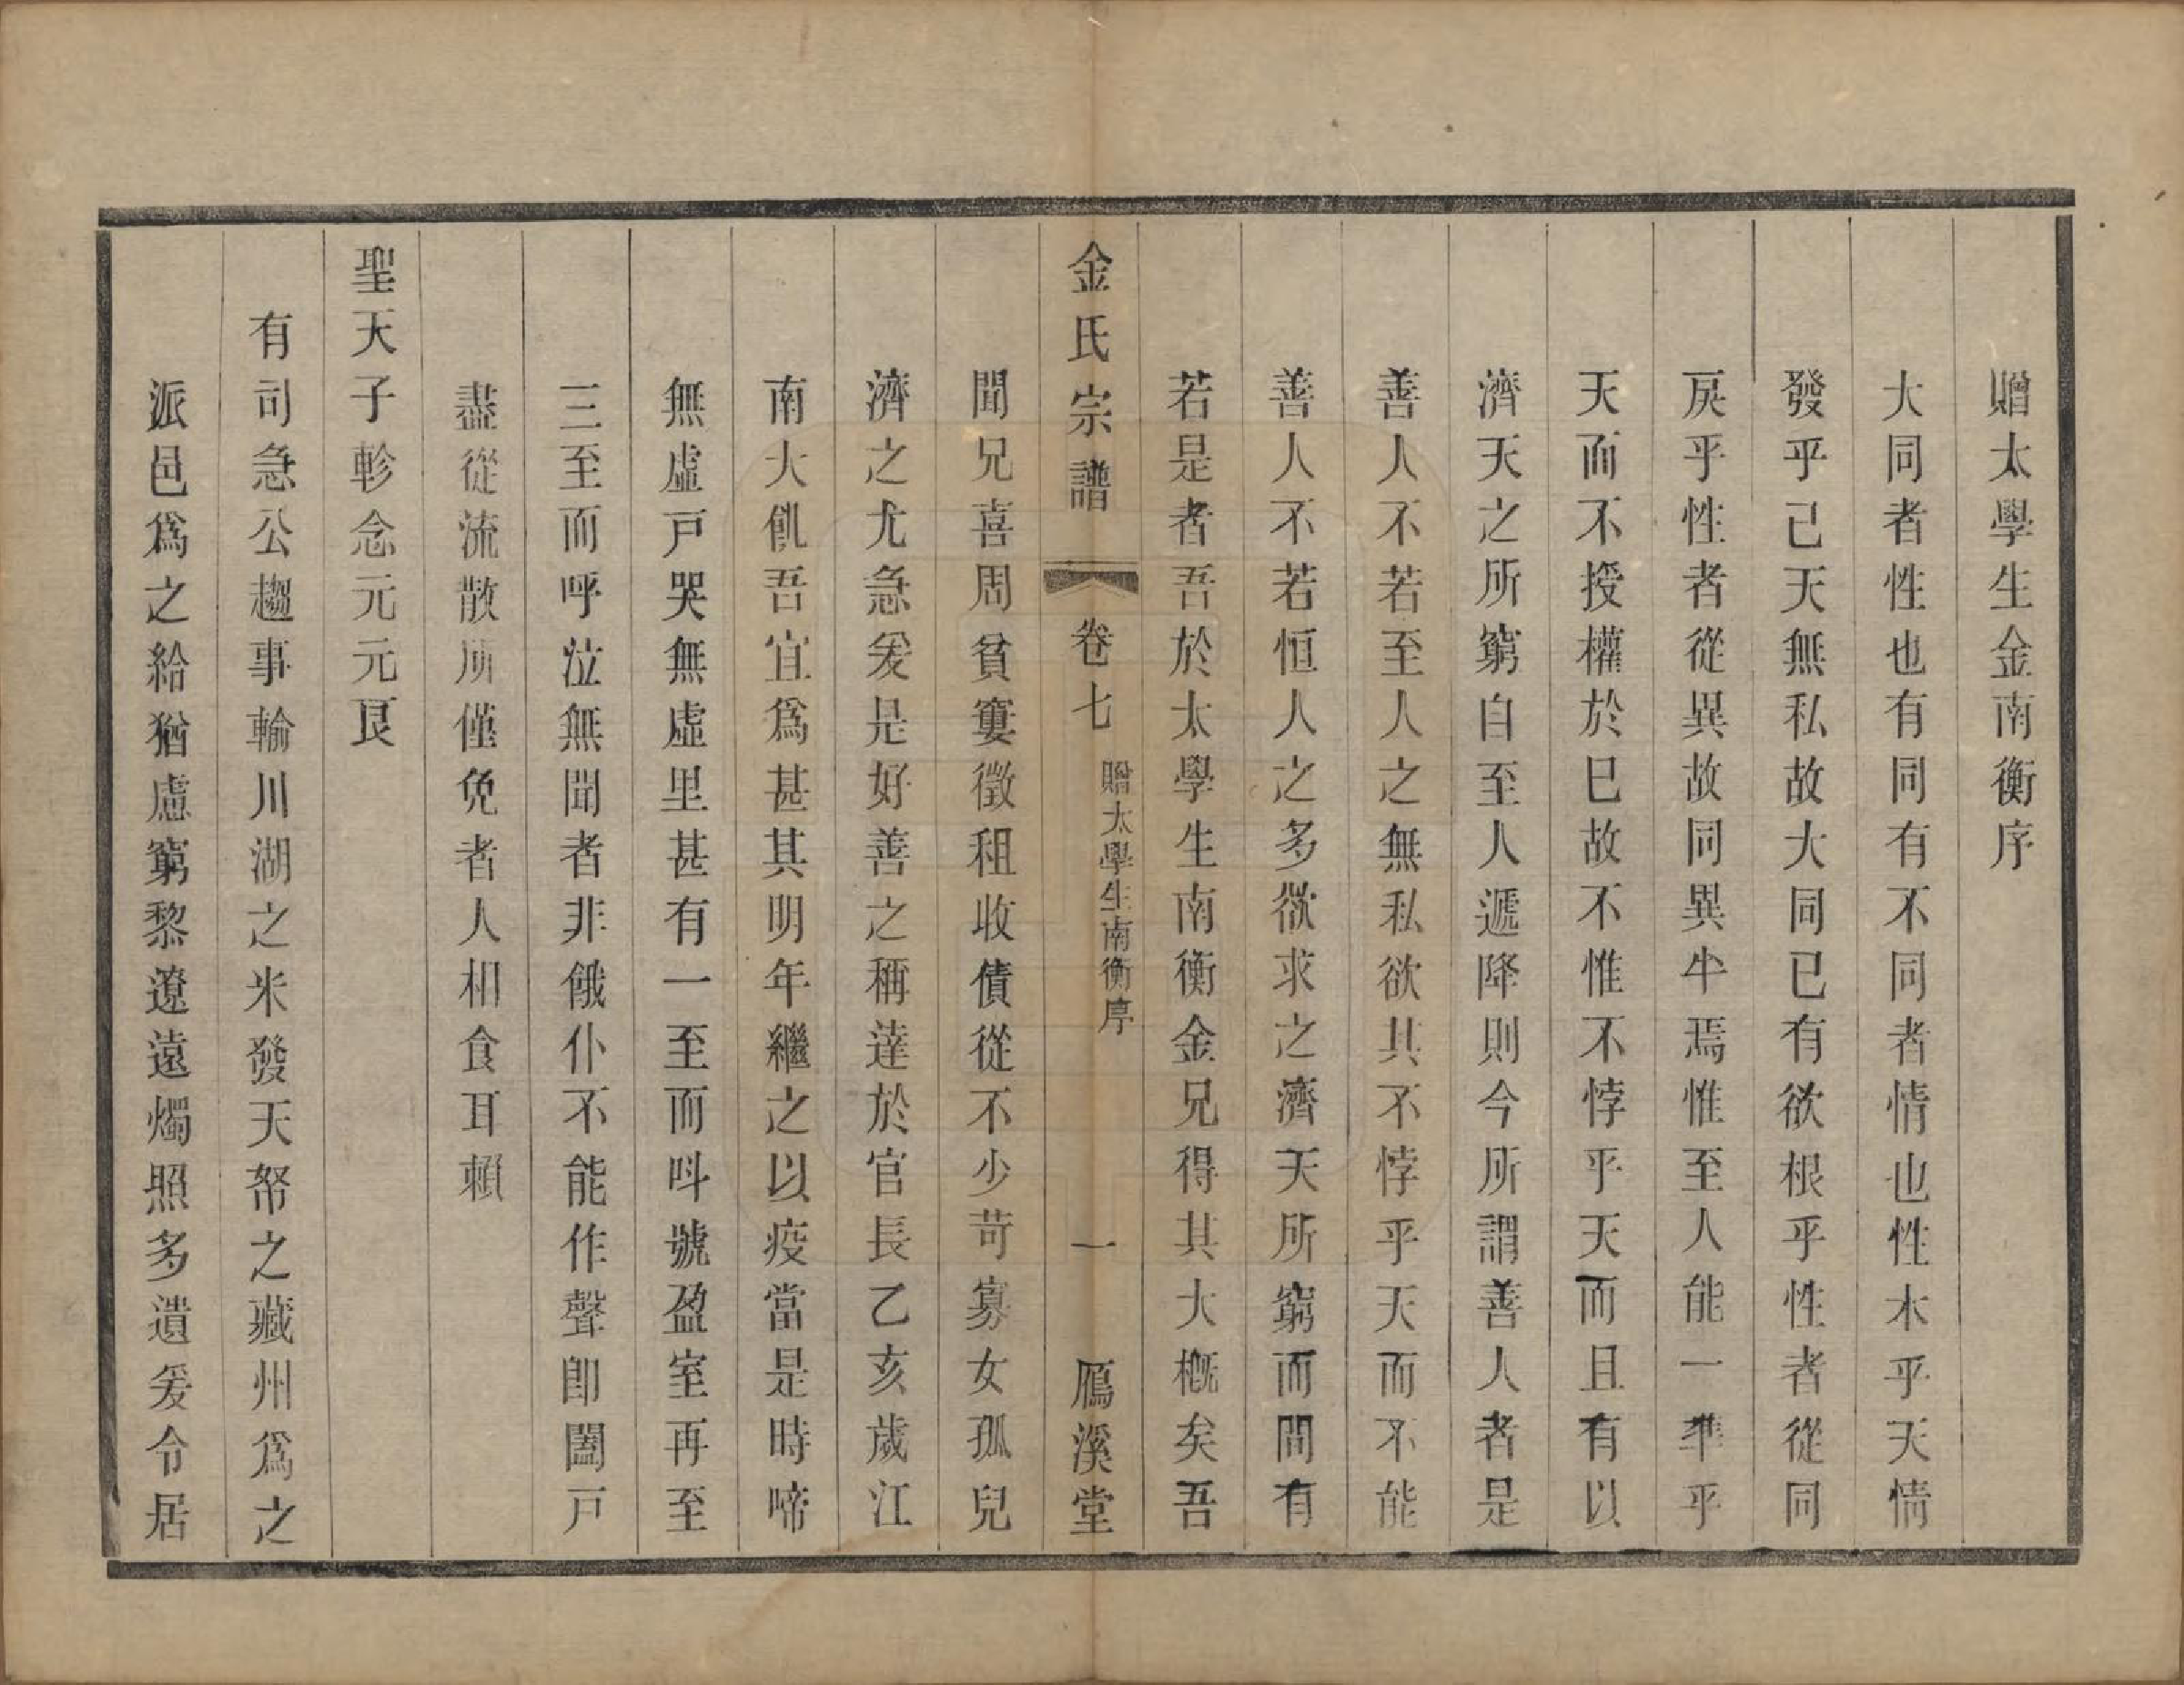 贈太學生金南衡序
大同者性也有同有不同者情也性木乎天情
發乎己天無私故大同已有欲根乎性者從同
戾乎性者從異故同異半焉惟至人能一準乎
天而不授權於巳故不惟不悖乎天而且有以
濟天之所窮自至人遞降則今所謂善人者是
善人不若至人之無私欲其不悖乎天而不能
善人不若恒人之多欲求之濟天所窮而間有
若是者吾於太學生南衡金兄得其大槪矣吾
金氏宗譜 卷七 贈太學生南衡序 一 鴈溪堂
聞兄喜周貧窶徵租收債從不少苛寡女孤兒
濟之尤急爰是好善之稱達於官長乙亥歲江
南大飢吾宜爲甚其明年繼之以疫當是時啼
無虛戸哭無虛里甚有一至而呌號盈室再至
三至而呼泣無聞者非餓仆不能作聲卽闔戸
盡從流散所僅免者人相食耳賴
聖天子軫念元元艮
有司急公趨事輸川湖之米發天帑之藏州爲之
派邑爲之給猶慮窮黎遼遠燭照多遺爰令居